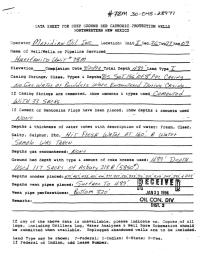 #78M 30-045-28971
DATA SHEET FOR DEEP GROUND BED CATHODIC PROTECTION WELLS
NORTHWESTERN NEW MEXICO
Operator Meridian Oil Inc. Location: Unit
Name of Well/Wells or Pipeline Serviced
Hardie Unit # 78M
Elevation Completion Date Total Depth 489' Land Type F
Casing Strings, Sizes, Types & Depths
No Gas, Water, or Boulders Were Encountered During Casing.
If Casing Strings are cemented, show amounts & types used Cemented
With 33 Sacks
If Cement or Bentonite Plugs have been placed, show depths & amounts used
None
Depths & thickness of water zones with description of water: Fresh, Clear,
Salty, Sulphur, Etc. Hit Fresh Water At 160'. A Water
Sample Was Taken
Depths gas encountered: None
Ground bed depth with type & amount of coke breeze used: 489' Depth.
Used 117 Sacks of Asbury 218R (5850#)
Depths anodes placed:
Depths vent pipes placed: Surface To 489'
Vent pipe perforations: Bottom 320'
Remarks:
RECEIVED
JAN 23 1996
OIL CON. DIV.
DIST. 3
If any of the above data is unavailable, please indicate so. Copies of all
logs, including Drillers Log, Water Analyses & Well Bore Schematics should
be submitted when available. Unplugged abandoned wells are to be included.
Land Type may be shown: F-Federal; I-Indian; S-State; P-Fee.
If Federal or Indian, add Lease Number.